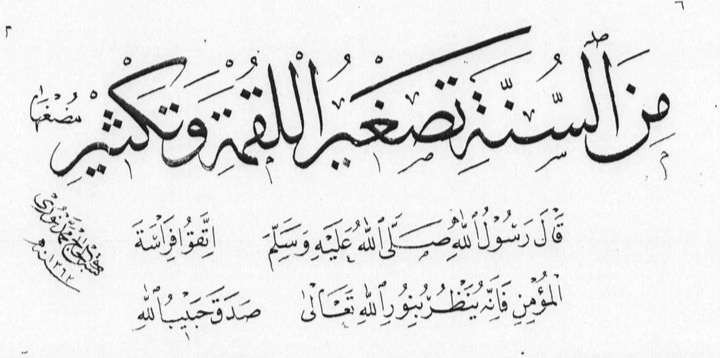 مِنَ السُّنَّةِ تَصْغِيرُ اللُّقْمَةِ وَتَكْثِيرُ مَضْغِهَا
قَالَ رَسُولُ اللهِ صَلَّى اللهُ عَلَيْهِ وَسَلَّمَ اِتَّقُوا فِرَاسَةَ
الْمُؤْمِنِ فَإِنَّهُ يَنْظُرُ بِنُورِ اللهِ تَعَالَىٰ صَدَقَ حَبِيبُ اللهِ